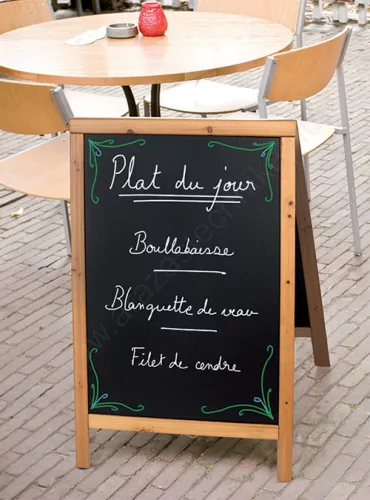 Plat du jour
Boullabaisse
Blanquette de vrau
Filet de cendre